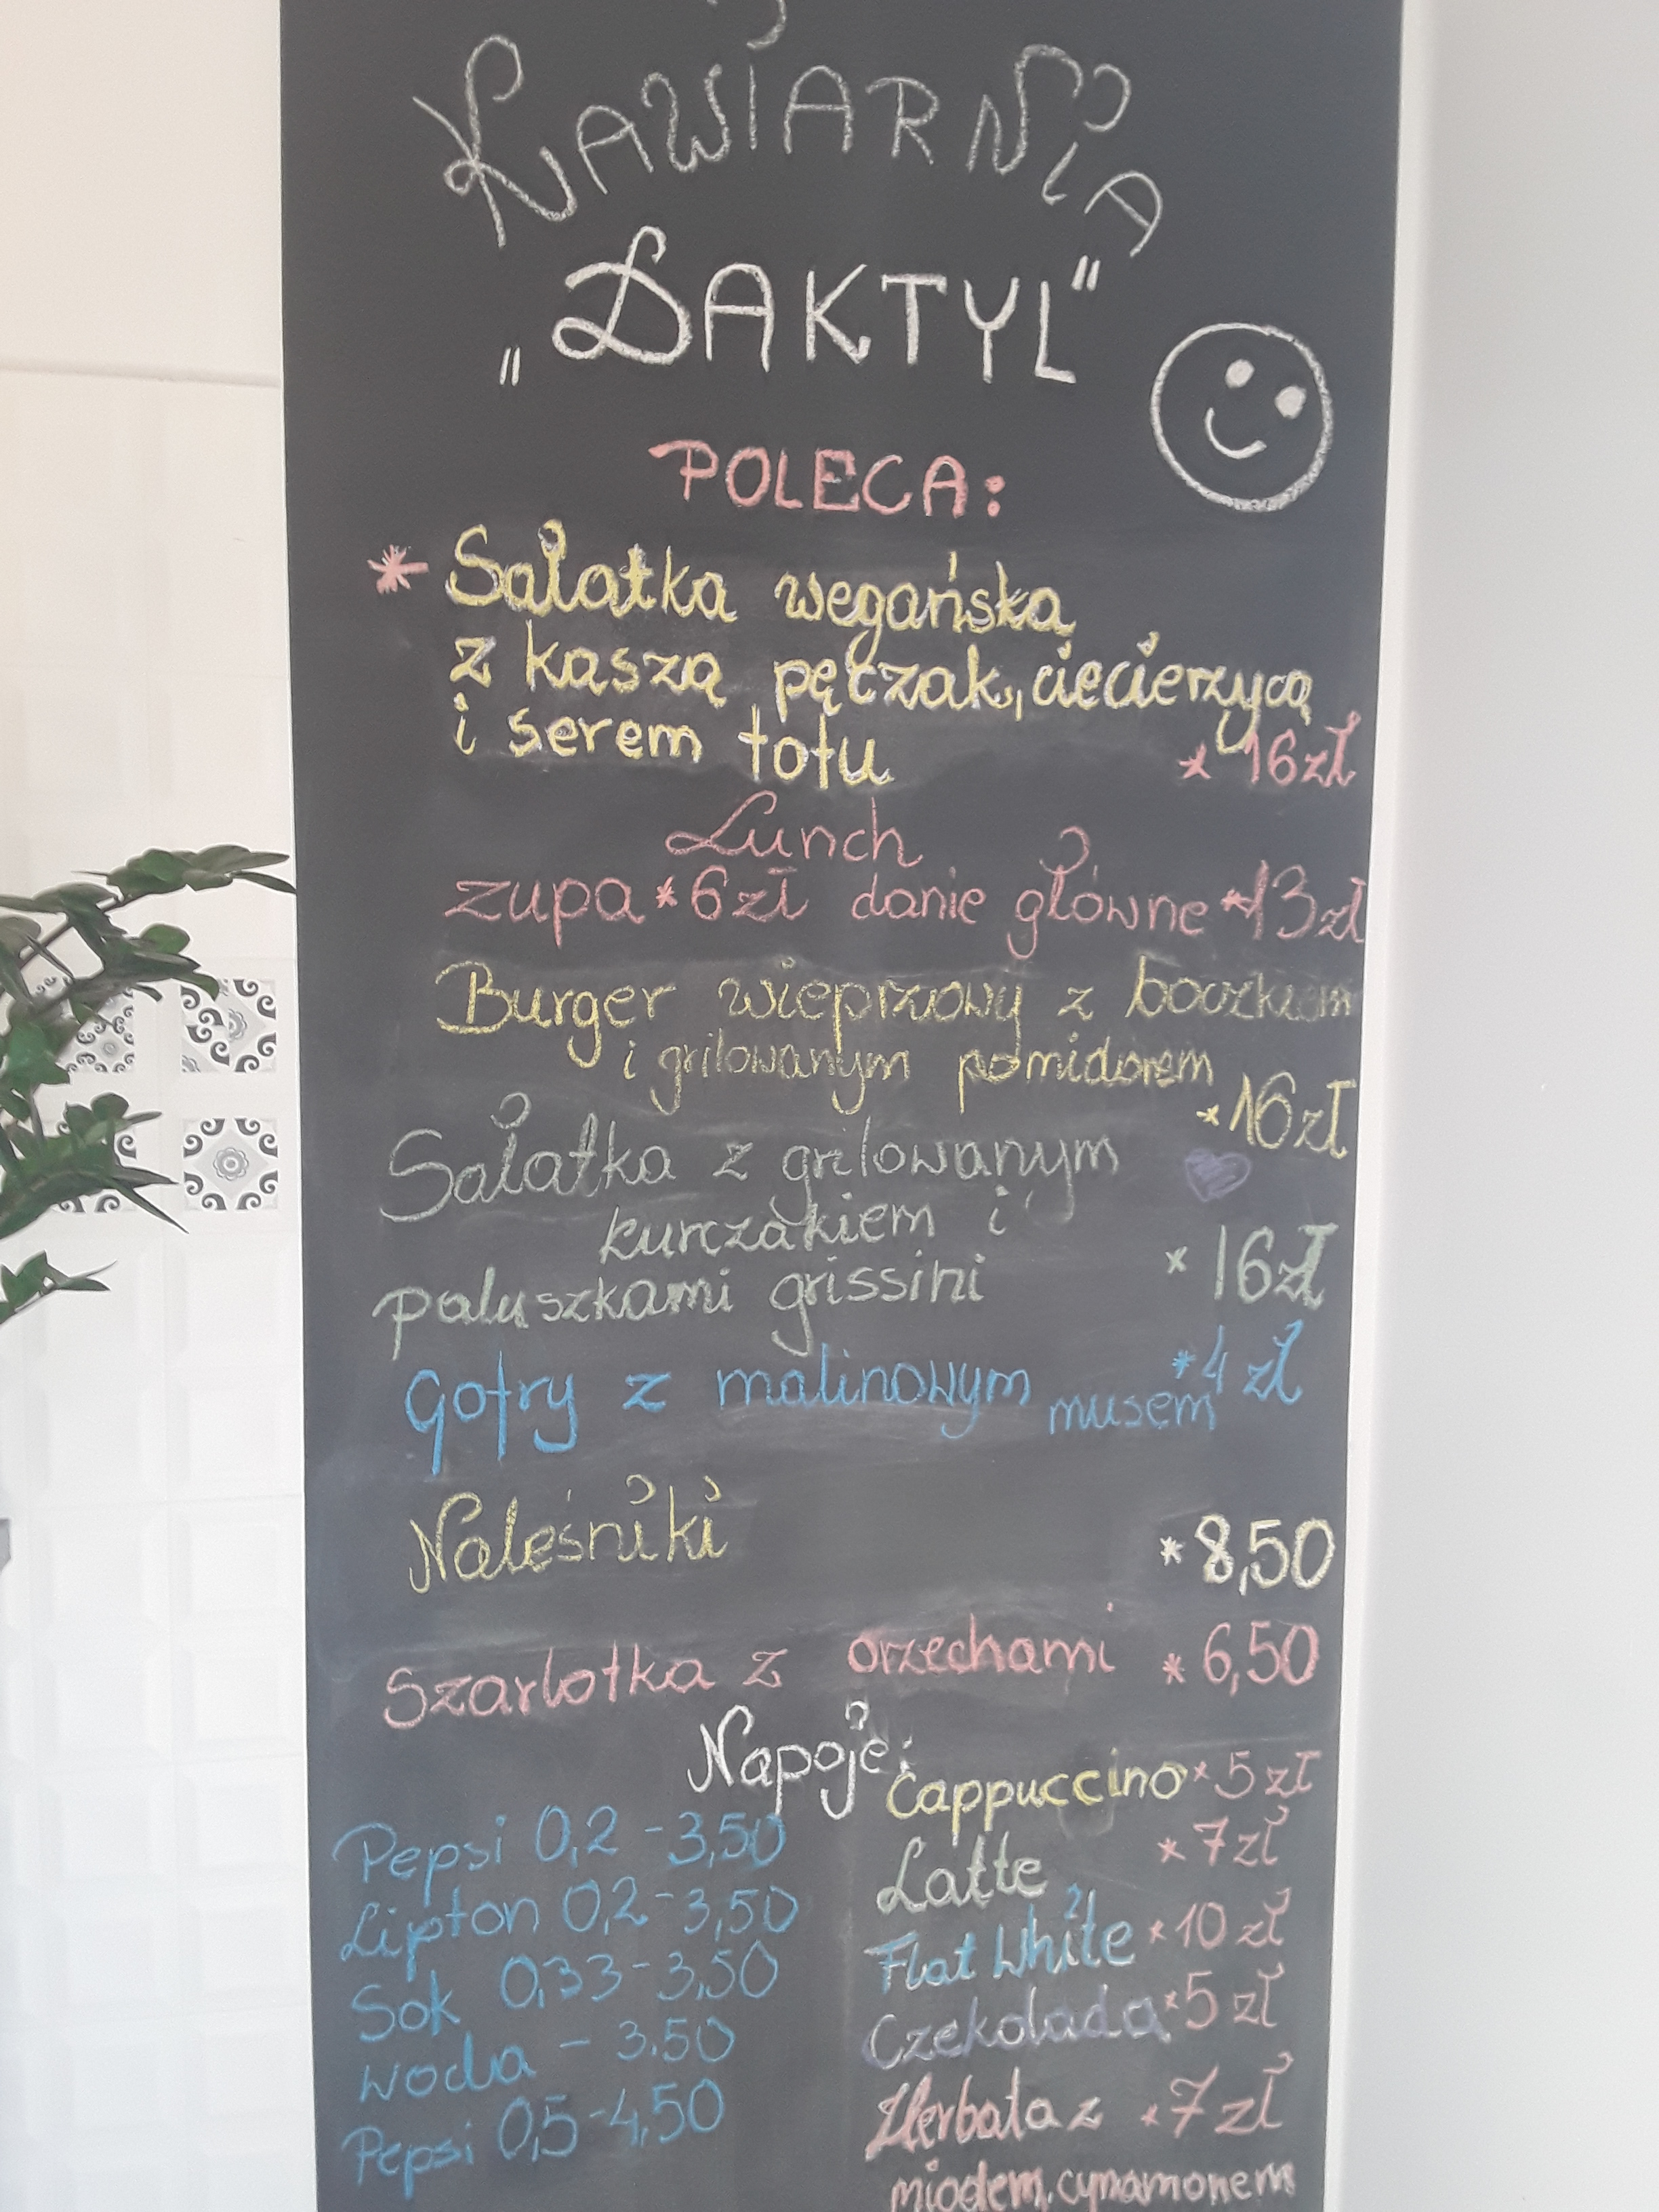 KAWIARNIA
„DAKTYL"
POLECA:
* Sałatka wegańska
z kaszą pęczak, ciecierzycą
i serem tofu * 16zł
Lunch
zupa * 6zł danie główne * 13zł
Burger wieprzowy z boczkiem
i grilowanym pomidorem
* 16zł
Sałatka z grilowanym
kurczakiem i
paluszkami grissini * 16zł
Gofry z malinowym musem * 4 zł
Naleśniki * 8,50
Szarlotka z orzechami * 6,50
Napoje:
Pepsi 0,2 - 3,50
Lipton 0,2 - 3,50
Sok 0,33 - 3,50
woda - 3.50
Pepsi 0,5 - 4,50
Cappuccino * 5 zł
Latte * 7 zł
Flat White * 10 zł
Czekolada * 5 zł
Herbata z * 7 zł
miodem, cynamonem